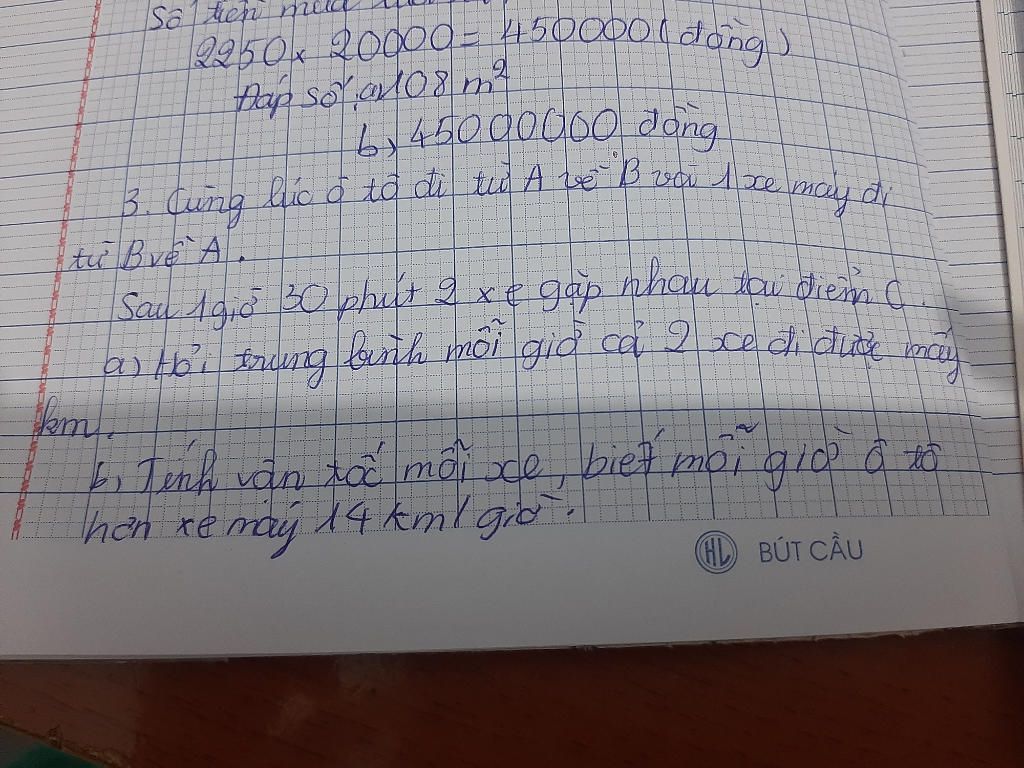 Số tiền mua
2250 x 20000 = 450000 (đồng)
Đáp số: a, 108 m²
b, 45000000 đồng
3. Cùng lúc ô tô đi từ A về B và 1 xe máy đi
từ B về A.
Sau 1 giờ 30 phút 2 xe gặp nhau tại điểm C.
a) Hỏi trung bình mỗi giờ cả 2 xe đi được mấy
km.
b, Tính vận tốc mỗi xe, biết mỗi giờ ô tô
hơn xe máy 14 km/giờ.
HL BÚT CẦU